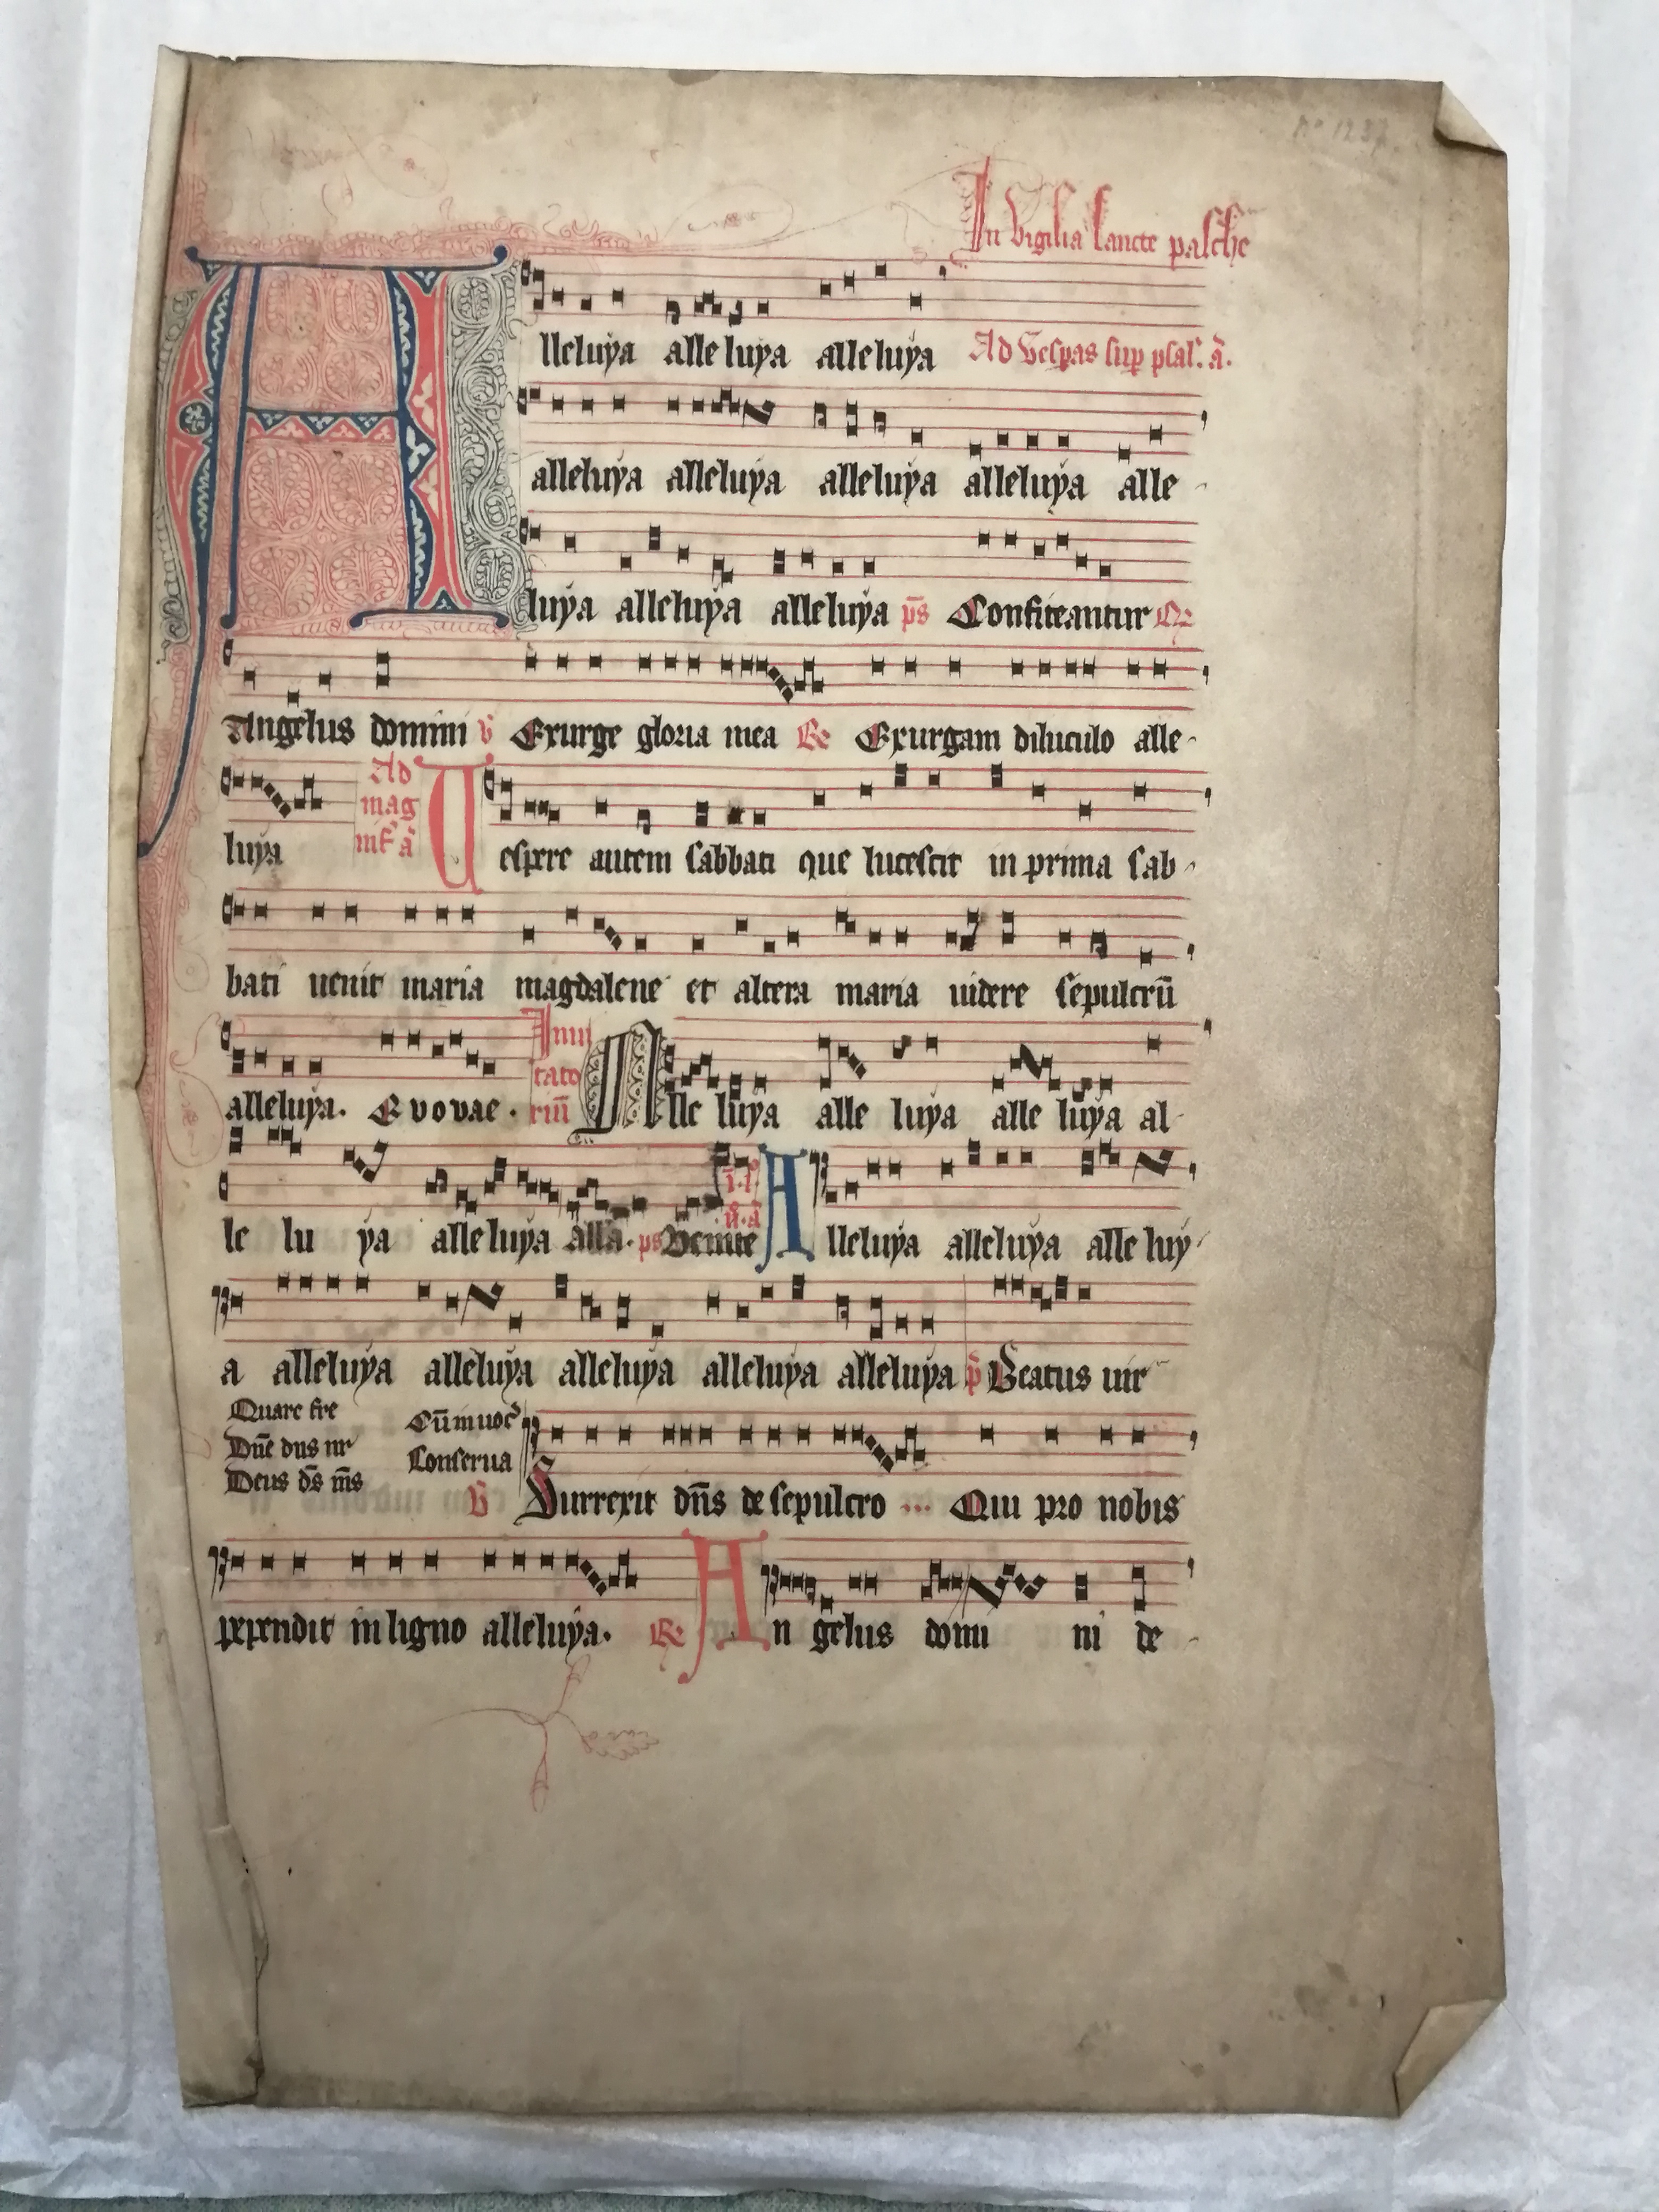 Nº 1237.
In vigilia sancte pasche
Alleluya alleluya alleluya Ad vespas sup psal. ā.
alleluya alleluya alleluya alleluya alle-
luya alleluya alleluya p̄s Confiteantur
Angelus domini v̄ Exurge gloria mea Re Exurgam diluculo alle-
luya Ad magnif ā Vespere autem sabbati que lucescit in prima sab-
bati uenit maria magdalene et altera maria uidere sepulcrū
alleluya. Evovae. Inuitatoriū Alleluya alleluya alleluya al-
leluya alleluya alla. ps Venite Alleluya alleluya alleluy-
a alleluya alleluya alleluya alleluya alleluya p̄ Beatus uir
Quare fre Cū inuoc
Dn̄e dns nr Conserua
Deus ds̄ ms̄
v̄ Surrexit dn̄s de sepulcro ... Qui pro nobis
pependit in ligno alleluya. Re Angelus domini de-